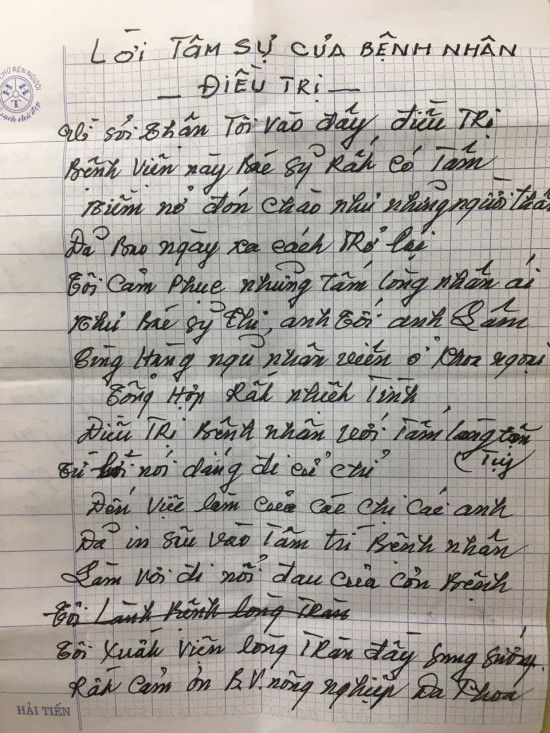 LỜI TÂM SỰ CỦA BỆNH NHÂN
— ĐIỀU TRỊ —
Vì sỏi thận Tôi vào đấy điều Trị
Bệnh Viện này Bác sỹ Rất có Tâm
Niềm nở đón chào như những người thân
Đã Bao ngày xa cách Trở lại
Tôi Cảm Phục những Tấm lòng nhân ái
Như Bác sỹ Thi, anh Tối anh Lâm
Cùng Hàng ngũ nhân viên ở Khoa ngoại
Tổng Hợp Rất nhiệt Tình
Điều Trị Bệnh nhân với Tấm lòng tận
Tụy
Từ nói dáng đi cử chỉ
Đến Việc làm của các chị các anh
Đã in sâu vào Tâm trí Bệnh nhân
Làm vơi đi nỗi đau của cơn Bệnh
Tôi Lành Bệnh lòng Tràn
Tôi Xuất Viện lòng Tràn đầy sung sướng.
Rất cảm ơn B.V. nông nghiệp Đa Khoa
HẢI TIẾN